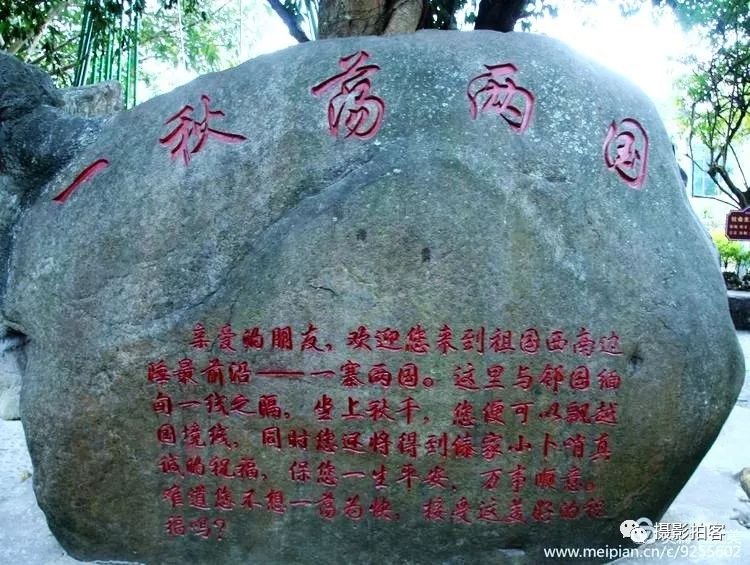 一秋荡两国
亲爱的朋友，欢迎您来到祖国西南边
陲最前沿——一寨两国。这里与邻国缅
甸一线之隔，坐上秋千，您便可以飘越
国境线，同时您还将得到傣家小卜哨真
诚的祝福，保您一生平安，万事顺意。
难道您不想一荡为快，接受这美好的祝
福吗？
摄影拍客
www.meipian.cn/c/9255602